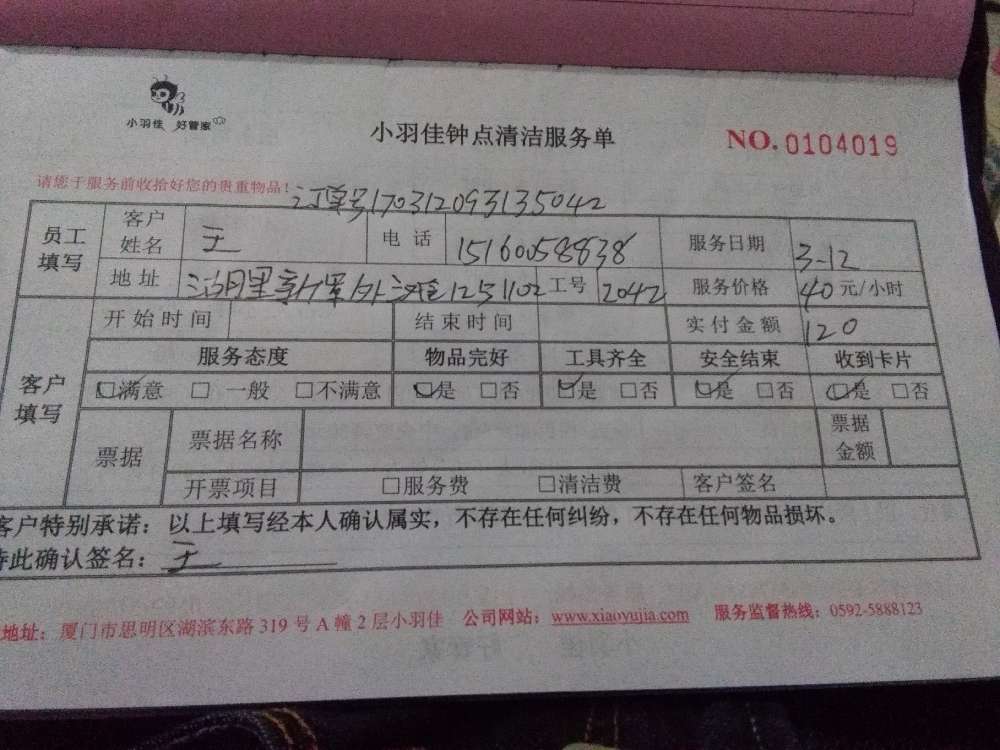 小羽佳 好管家
小羽佳钟点清洁服务单
NO. 0104019
请您于服务前收拾好您的贵重物品！
订单号170312093135042
员工填写 客户姓名 王 电话 15160058838 服务日期 3-12
地址 1251102 工号 2042 服务价格 40 元/小时
客户填写 开始时间 结束时间 实付金额 120
服务态度 物品完好 工具齐全 安全结束 收到卡片
☑满意 □一般 □不满意 ☑是 □否 ☑是 □否 ☑是 □否 ☑是 □否
票据 票据名称 票据金额
开票项目 □服务费 □清洁费 客户签名
客户特别承诺：以上填写经本人确认属实，不存在任何纠纷，不存在任何物品损坏。
特此确认签名：王
地址：厦门市思明区湖滨东路 319 号 A 幢 2 层小羽佳 公司网站：www.xiaoyujia.com 服务监督热线：0592-5888123